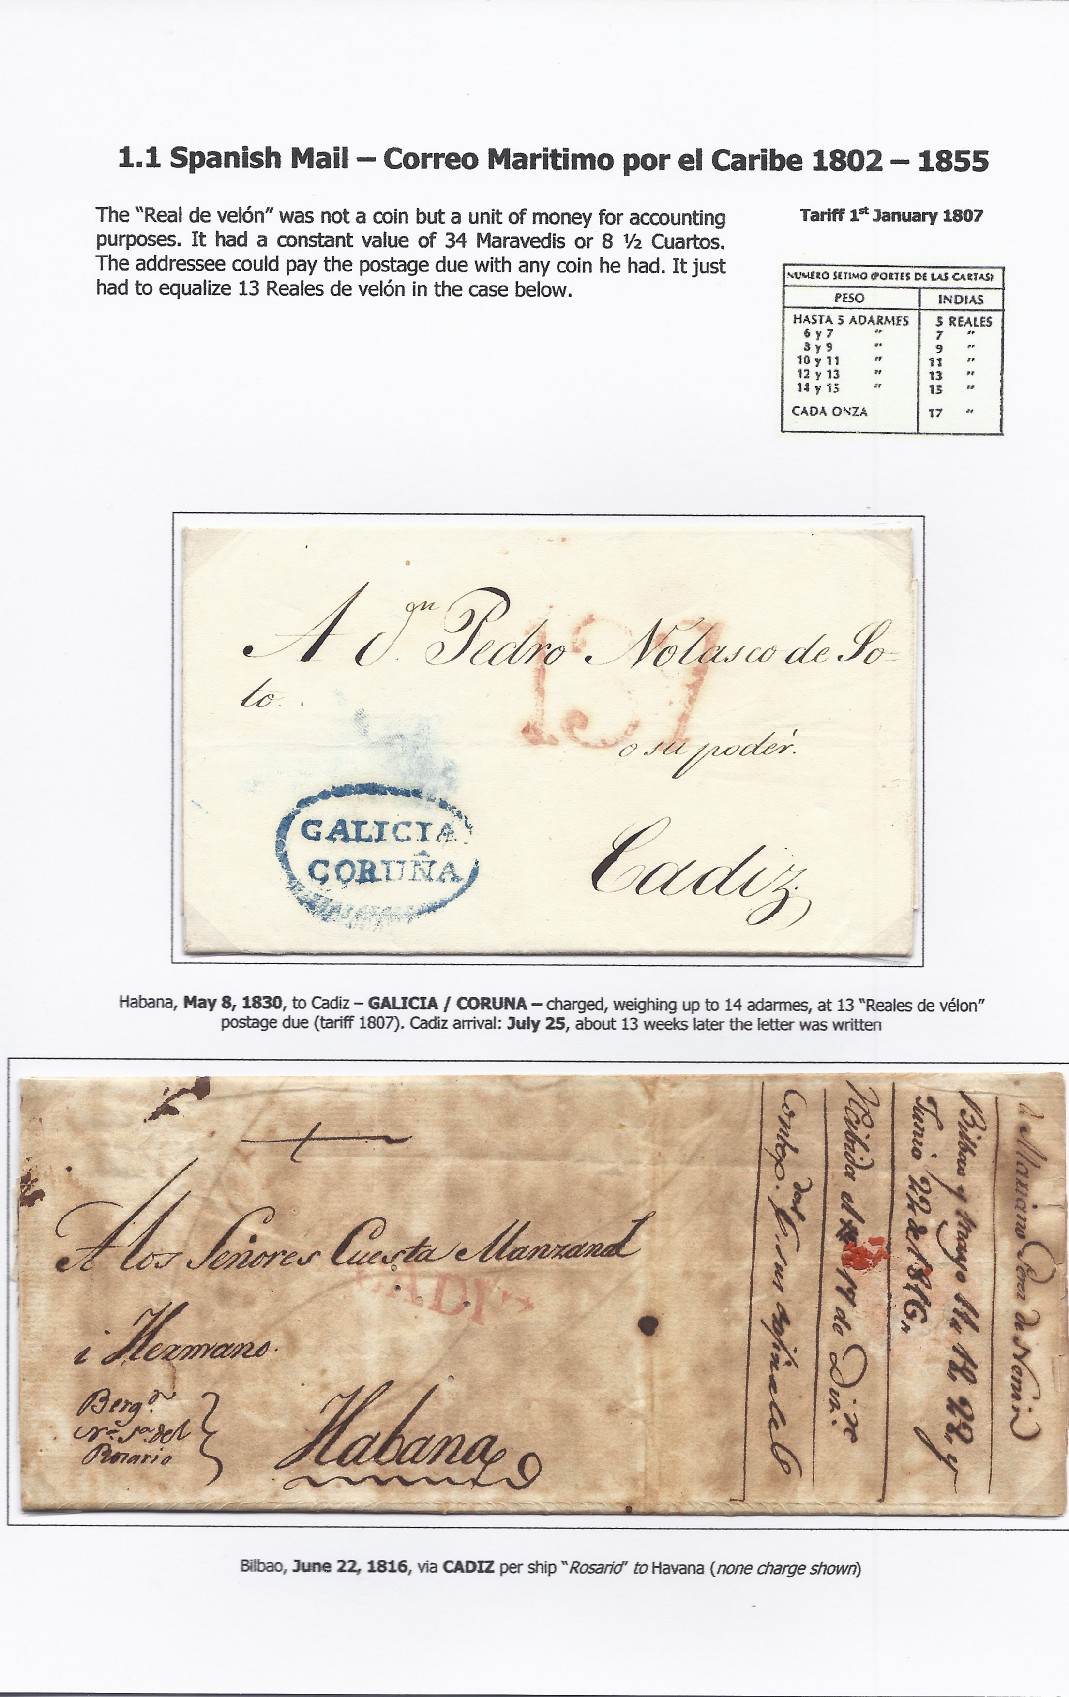 1.1 Spanish Mail – Correo Maritimo por el Caribe 1802 – 1855
The "Real de velón" was not a coin but a unit of money for accounting
purposes. It had a constant value of 34 Maravedis or 8 ½ Cuartos.
The addressee could pay the postage due with any coin he had. It just
had to equalize 13 Reales de velón in the case below.
Tariff 1st January 1807
NUMERO SETIMO (PORTES DE LAS CARTAS)
PESO INDIAS
HASTA 5 ADARMES 5 REALES
6 y 7 " 7 "
8 y 9 " 9 "
10 y 11 " 11 "
12 y 13 " 13 "
14 y 15 " 15 "
CADA ONZA 17 "
A Dn. Pedro Nolasco de So=
to.
13
o su podér.
GALICIA
CORUÑA
Cadiz.
Habana, May 8, 1830, to Cadiz – GALICIA / CORUNA – charged, weighing up to 14 adarmes, at 13 "Reales de vélon"
postage due (tariff 1807). Cadiz arrival: July 25, about 13 weeks later the letter was written
A los Señores Cuesta Manzanal
CADIZ
i Hermano.
Berg.n
Na. Sa. del
Rosario
Habana
Mariano
de
Bilbao y Mayo
Junio 22 de 1816
Recibida el 17 de
Bilbao, June 22, 1816, via CADIZ per ship "Rosario" to Havana (none charge shown)